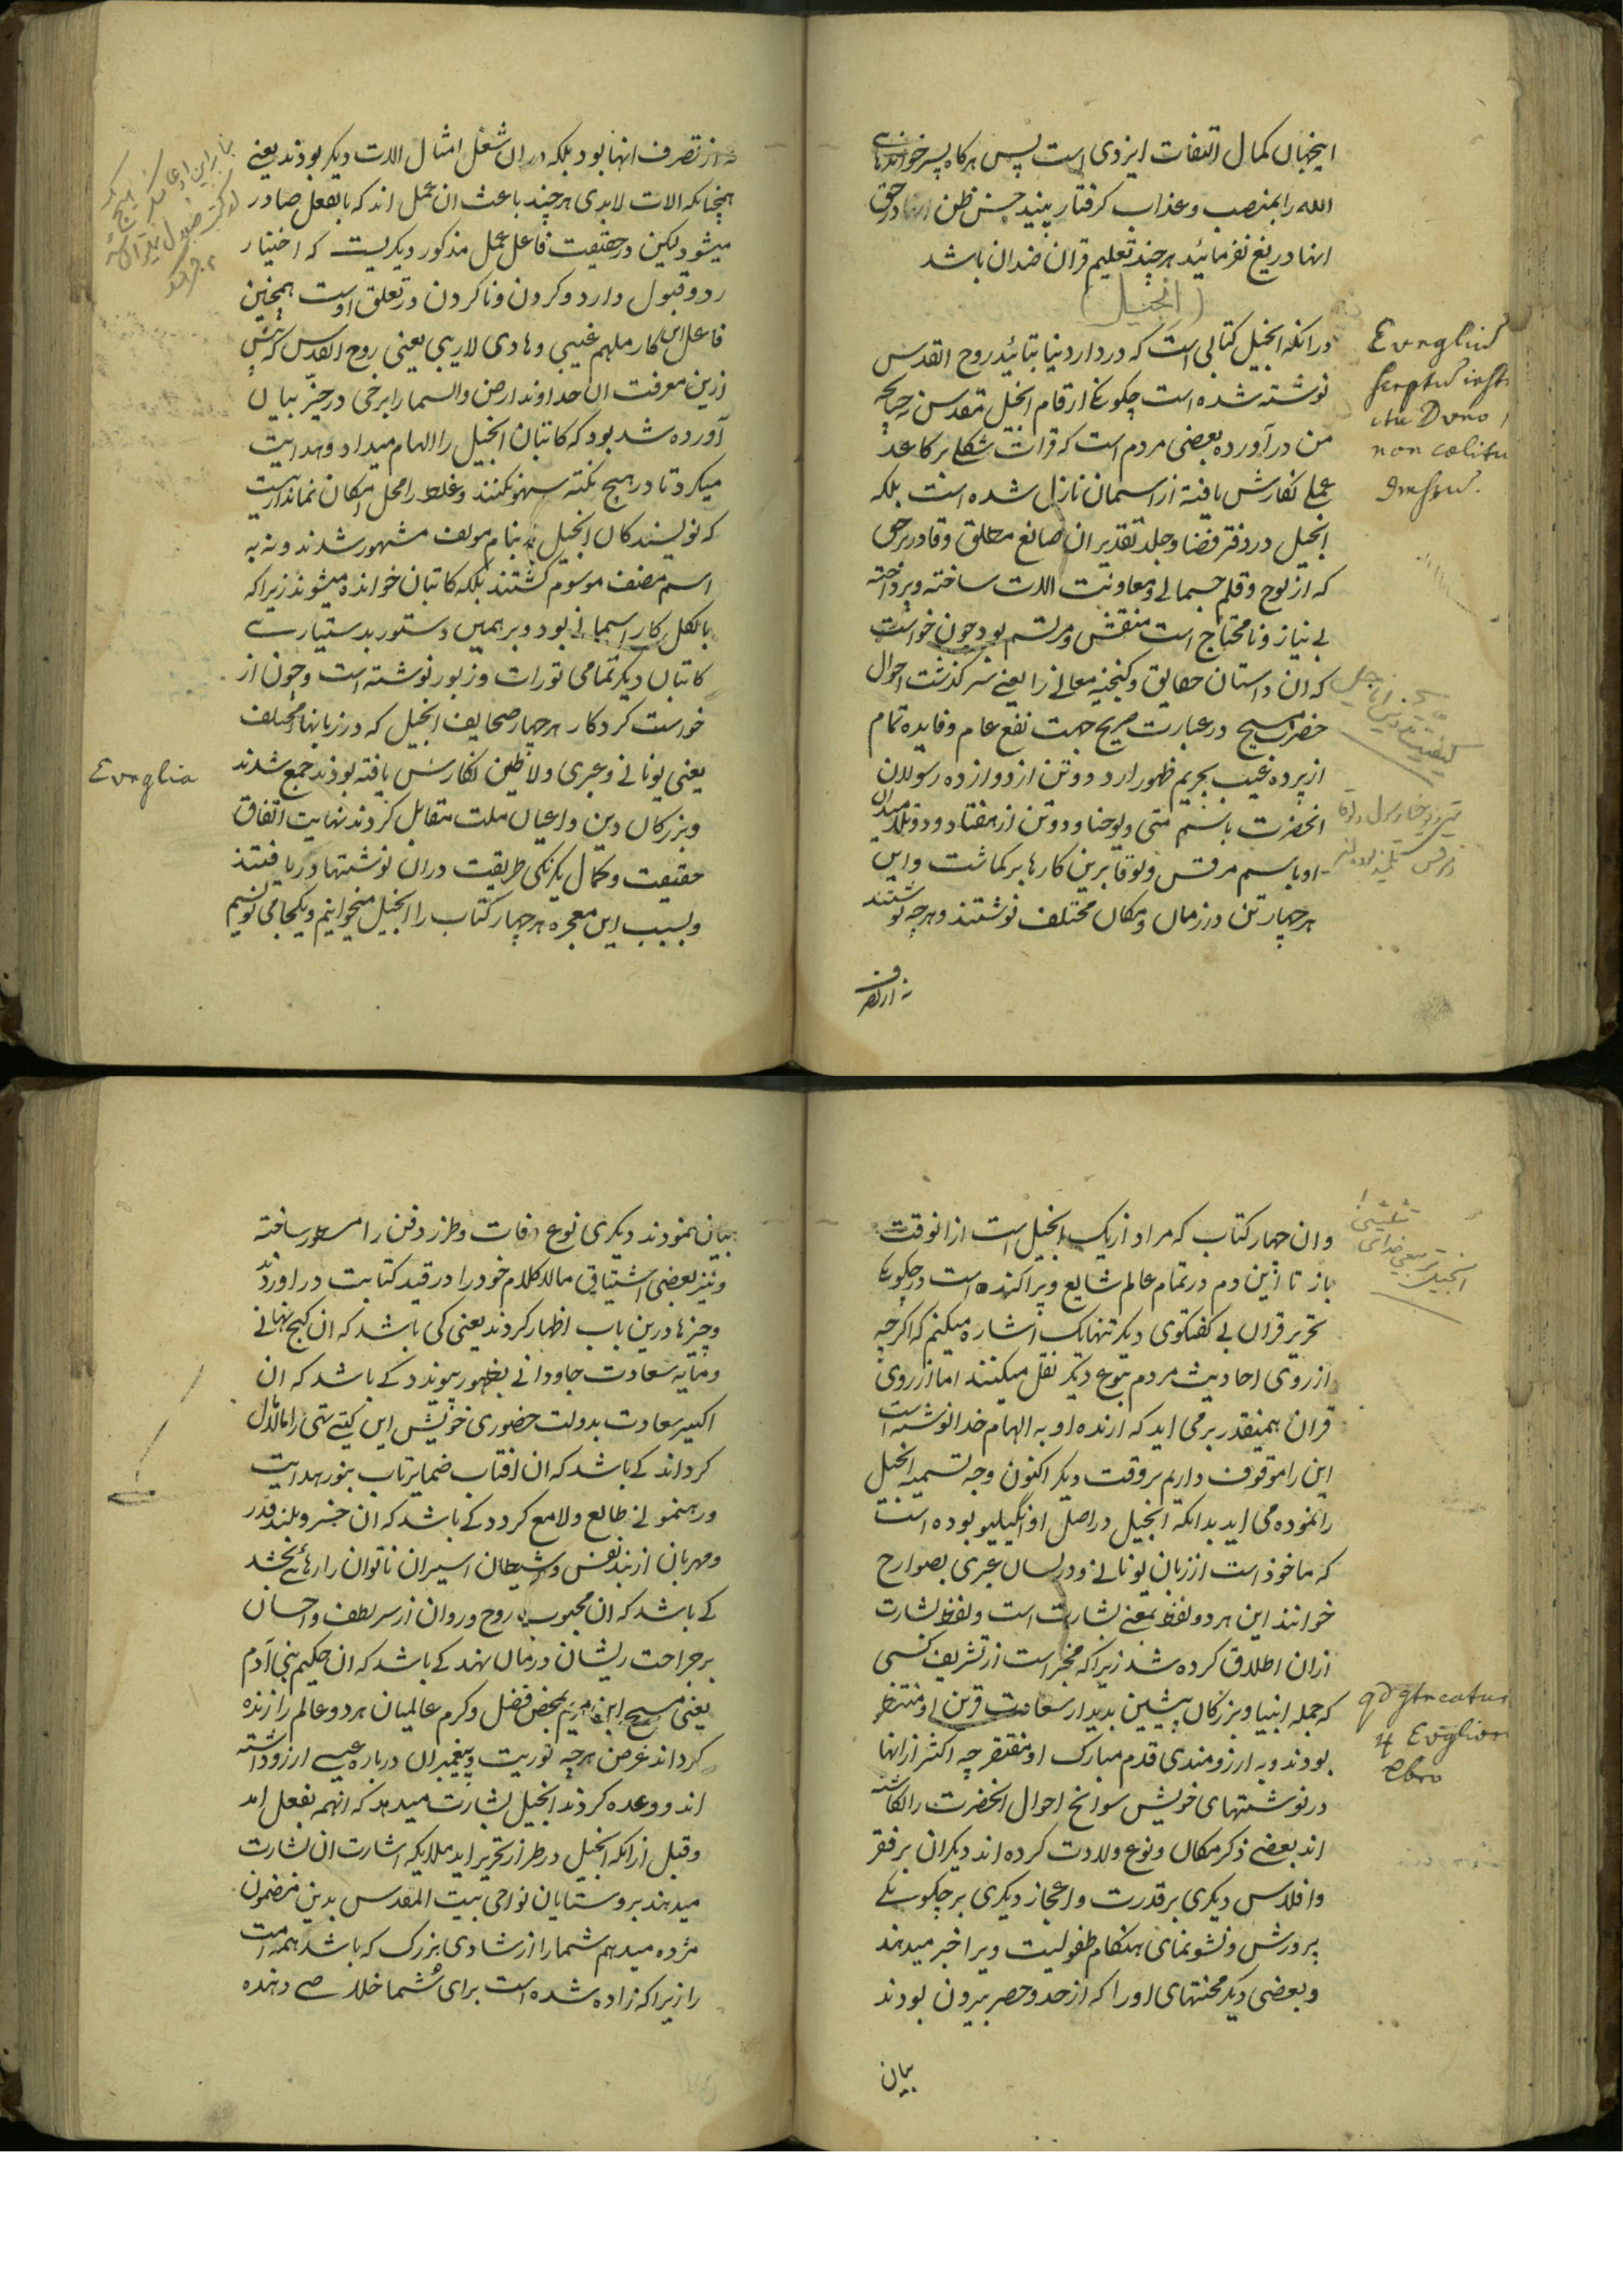 اینجهان کمال التفات ایزدی است پس هرکاه پسر خواندهای
الله را بمنصب و عذاب کرفتار بینید حسن ظن در حق
انها دریغ نفرمائید هر چند تعلیم قران ضد ان باشد
(انجیل)
در انکه انجیل کتابی است که در دار دنیا بتائید روح القدس
نوشته شده است چکونکی ارقام انجیل مقدس نه چنانچه
من در آورده بعضی مردم است که قرات شکلی بر کاغذ
عملی نکارش یافته از اسمان نازل شده است بلکه
انجیل در دفتر قضا و جلد تقدیر ان صانع مطلق و قادر بر حق
که از لوح و قلم جسمانی و معاونت الات ساخته و پرداخته
بی نیاز و نا محتاج است منقش و مرتسم بود چون خواست
که ان داستان حقایق و کنجینه معانی را یعنی سر کذشت احوال
حضرت مسیح در عبارت صریح جهت نفع عام و فایده تمام
از پرده غیب بحریم ظهور ارد دو تن از دوازده رسولان
انحضرت باسم متی و یوحنا و دو تن از هفتاد و دو تلمیذان
او باسم مرقس و لوقا برین کار ها بر کماشت و این
هر چهار تن در زمان و مکان مختلف نوشتند و هر چه نوشتند
نه از تصرف
Evnglium
scriptu insti
non cœlitu
نه از تصرف انها بود بلکه در ان شغل امثال الات دیکر بودند یعنی
همچنانکه الات لابدی هر چند باعث ان عمل اند که بالفعل صادر
میشود لیکن در حقیقت فاعل عمل مذکور دیکریست که اختیار
رد و قبول دارد و کردن و نا کردن در تعلق اوست همچنین
فاعل این کار ملهم غیبی و هادی لاریبی یعنی روح القدس که پیش
ازین معرفت ان خداوند ارض و السما را برخی در حیّز بیان
آورده شد بود که کاتبان انجیل را الهام میداد و هدایت
میکرد تا در هیچ نکته سهو نکنند و غلط را محل امکان نماند ازینست
که نویسندکان انجیل نه بنام مولف مشهور شدند و نه به
اسم مصنف موسوم کشتند بلکه کاتبان خوانده میشوند زیرا که
بالکل کار اسمانی بود و بر همین دستور بدستیاری
کاتبان دیکر تمامی تورات و زبور نوشته است و چون از
خواست کردکار هر چهار صحایف انجیل که در زبانها مختلف
یعنی یونانی و عبری و لاطین نکارش یافته بودند جمع شدند
و بزرکان دین و اعیان ملت مقابل کردند نهایت اتفاق
حقیقت و کمال یکرنکی طریقت در ان نوشتها دریافتند
و بسبب این معجزه هر چهار کتاب را انجیل میخوانیم و یکجا می نویسیم
Evnglia
و ان چهار کتاب که مراد از یک انجیل است از انوقت
باز تا این دم در تمام عالم شایع و پراکنده است در چکونکی
تحریر قران بی کفتکوی دیکر تنها یک اشاره میکنم که اکرچه
از روی احادیث مردم بنوع دیکر نقل میکنند اما از روی
قران همینقدر بر می اید که ارنده او به الهام خدا نوشته است
این را موقوف داریم بر وقت دیکر اکنون وجه تسمیه انجیل
را نموده می اید بدانکه انجیل در اصل اوانگیلیو بوده است
که ماخوذ است از زبان یونانی و در لسان عبری بصوارح
خوانند این هر دو لفظ بمعنی بشارت است و لفظ بشارت
ازان اطلاق کرده شد زیرا که مخبر است از تشریف کسی
که جمله انبیا و بزرکان پیشین بدیدار سعادت قرین او منتظر
بودند و به ارزومندی قدم مبارک او مفتقر چه اکثر از انها
در نوشتهای خویش سوانح احوال انحضرت را انکاشته
اند بعضی ذکر مکان و نوع ولادت کرده اند دیکران بر فقر
و افلاس دیکری بر قدرت و اعجاز دیکری بر چکونکی
پرورش و نشو نمای هنکام طفولیت ویرا خبر میدهند
و بعضی دیکر محنتهای او را که از حد و حصر بیرون بودند
بیان
بیان نمودند دیکری نوع وفات و طرز دفن را مسطور ساخته
و نیز بعضی اشتیاق مالا کلام خود را در قید کتابت در اوردند
و چیزها درین باب اظهار کردند یعنی کی باشد که ان کنج نهانی
و مایه سعادت جاودانی بظهور پیوندد کی باشد که ان
اکسیر سعادت بدولت حضوری خویش این کیتی تهی را مالامال
کرداند کی باشد که ان افتاب ضمایر تاب بنور هدایت
و رهنمونی طالع و لامع کردد کی باشد که ان خسرو بلند قدر
و مهربان از بند نفس و شیطان اسیران ناتوان را رهائی بخشد
کی باشد که ان محبوب روح و روان از سر لطف و احسان
بر جراحت ریشان درمان نهد کی باشد که ان حکیم بنی آدم
یعنی مسیح ابن مریم بمحض فضل و کرم عالمیان هر دو عالم را زنده
کرداند غرض هر چه توریت و پیغمبران در باره عیسی ارزو داشته
اند و وعده کردند انجیل بشارت میدهد که انهمه بفعل امد
و قبل از انکه انجیل در طراز تحریر اید ملایکه اشارت ان بشارت
میدهند بروستایان نواحی بیت المقدس بدین مضمون
مژده میدهم شما را از شادی بزرک که باشد همه امت
را زیرا که زاده شده است برای شما خلاصی دهنده